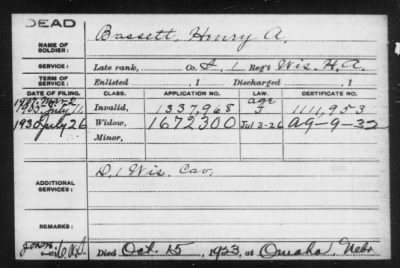 DEAD
NAME OF SOLDIER: Bassett, Henry A.
SERVICE: Late rank, Co. I, 1 Reg't Wis. H.A.
TERM OF SERVICE: Enlisted , 1 Discharged , 1
DATE OF FILING. CLASS. APPLICATION NO. LAW. CERTIFICATE NO.
July 11 Invalid, 1337,968 age 1111,953
1930 July 26 Widow, 1672300 Jul 3-26 A9-9-32
Minor,
ADDITIONAL SERVICES: D, 1 Wis. Cav.
REMARKS:
Died Oct. 15, 1923, at Omaha, Nebr